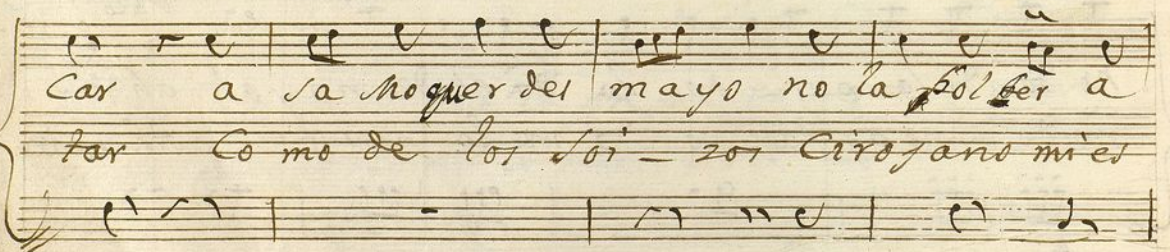 Car a sa Moquer del mayo no la bolber a
tar Co mo de los Soi - zos Cirojano mi es